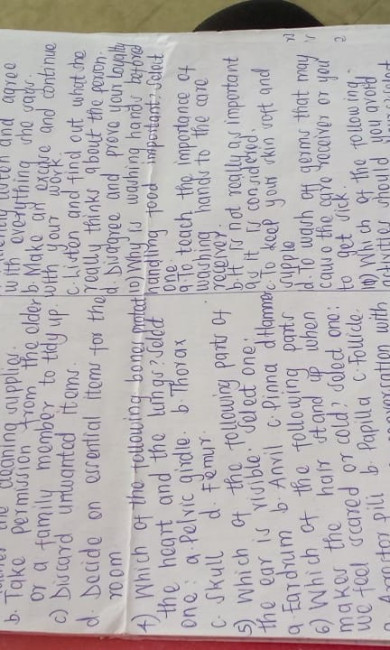 the cleaning supplies.
b. Take Permission from the elder
or a family member to tidy up.
c) Discard unwanted items.
d. Decide on essential items for the
room
4) Which of the following bones protect
the heart and the lungs? Select
one: a. Pelvic girdle. b. Thorax
c. Skull d. Femur.
5) Which of the following parts of
the ear is visible. Select one:
a. Eardrum b. Anvil c. Pinna d. Hammer
6) Which of the following parts
makes the hair stand up when
we feel scared or cold? Select one:
pili b. Papilla c. Follicle.
listen and agree
with everything she says.
b. Make an excuse and continue
with your work.
c. Listen and find out what she
really thinks about the person.
d. Disagree and prove your loyalty
10) Why is washing hands before
handling food important. Select
one.
a. To teach the importance of
washing hands to the care
receiver.
b. It is not really as important
as it is considered.
c. To keep your skin soft and
supple
d. To wash off germs that may
cause the care receiver or you
to get sick.
Which of the following
should you avoid